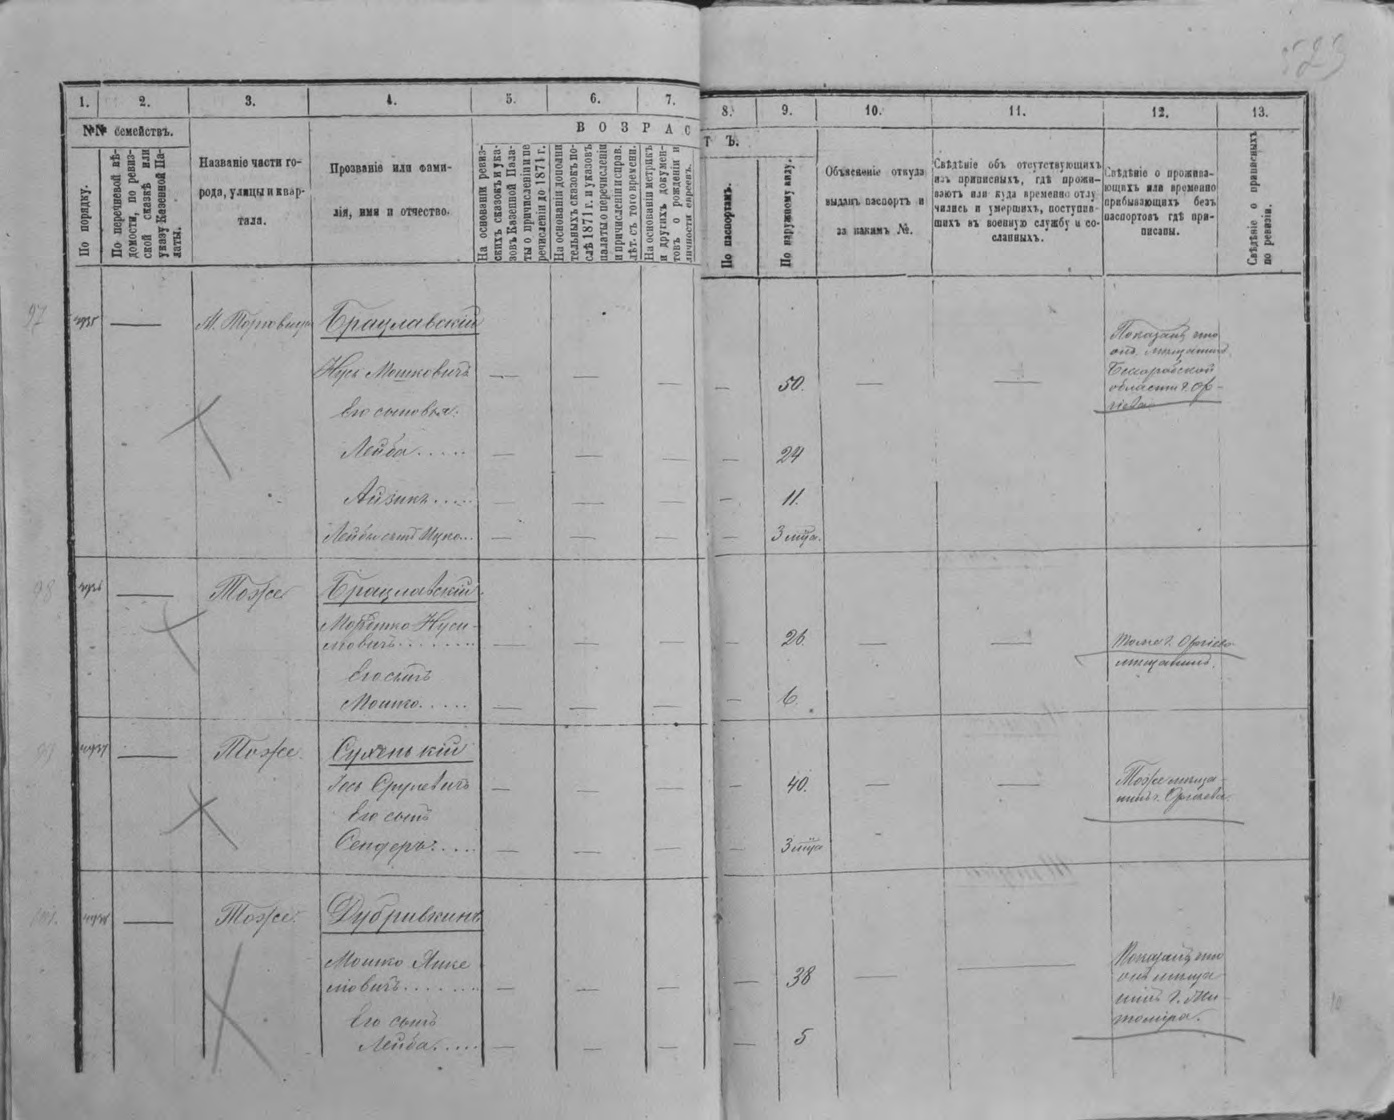 523
1. 2. 3. 4. 5. 6. 7. 8. 9. 10. 11. 12. 13.
№№ семействъ.
В О З Р А С Т Ъ.
По порядку.
По перечневой вѣдомости, по ревизской сказкѣ или указу Казенной Палаты.
Названіе части города, улицы и квартала.
Прозваніе или фамилія, имя и отчество.
На основаніи ревизскихъ сказокъ и указовъ Казенной Палаты о причисленіи и перечисленіи до 1871 г.
На основаніи дополнительныхъ сказокъ послѣ 1871 г. и указовъ палаты о перечисленіи и причисленіи и справ. лѣт. съ того времени.
На основаніи метрикъ и другихъ документовъ о рожденіи и личности евреевъ.
По паспортамъ.
По наружному виду.
Объясненіе откуда выданъ паспортъ и за какимъ №.
Свѣдѣніе объ отсутствующихъ изъ приписныхъ, гдѣ проживаютъ или куда временно отлучились и умершихъ, поступившихъ въ военную службу и сосланныхъ.
Свѣдѣніе о проживающихъ или временно прибывающихъ безъ паспортовъ гдѣ приписаны.
Свѣдѣніе о приписныхъ по ревизіи.
97 — М. Торговица Брацлавскій
Нусь Мошковичъ — — — — 50. — —
Показалъ что онъ мѣщанинъ Бессарабской области г. Оргіева
Его сыновья:
Лейба — — — — 24
Айзикъ — — — — 11.
Лейбы сынъ Ицко — — — — 3 мѣся.
98 — Тоже Брацлавскій
Мордко Нусимовичъ — — — — 26. — —
Тоже г. Оргіева мѣщанинъ.
Его сынъ
Мошко — — — — 6
— Тоже. Сухенькій
Іось Срулевичъ — — — — 40. — —
Тоже мѣщанинъ г. Оргіева.
Его сынъ
Сендеръ — — — — 3 мѣся
— Тоже. Дубривкинъ
Мошко Янкелевичъ — — — — 38 — —
Показалъ что онъ мѣщанинъ г. Житоміра.
Его сынъ
Лейба — — — — 5